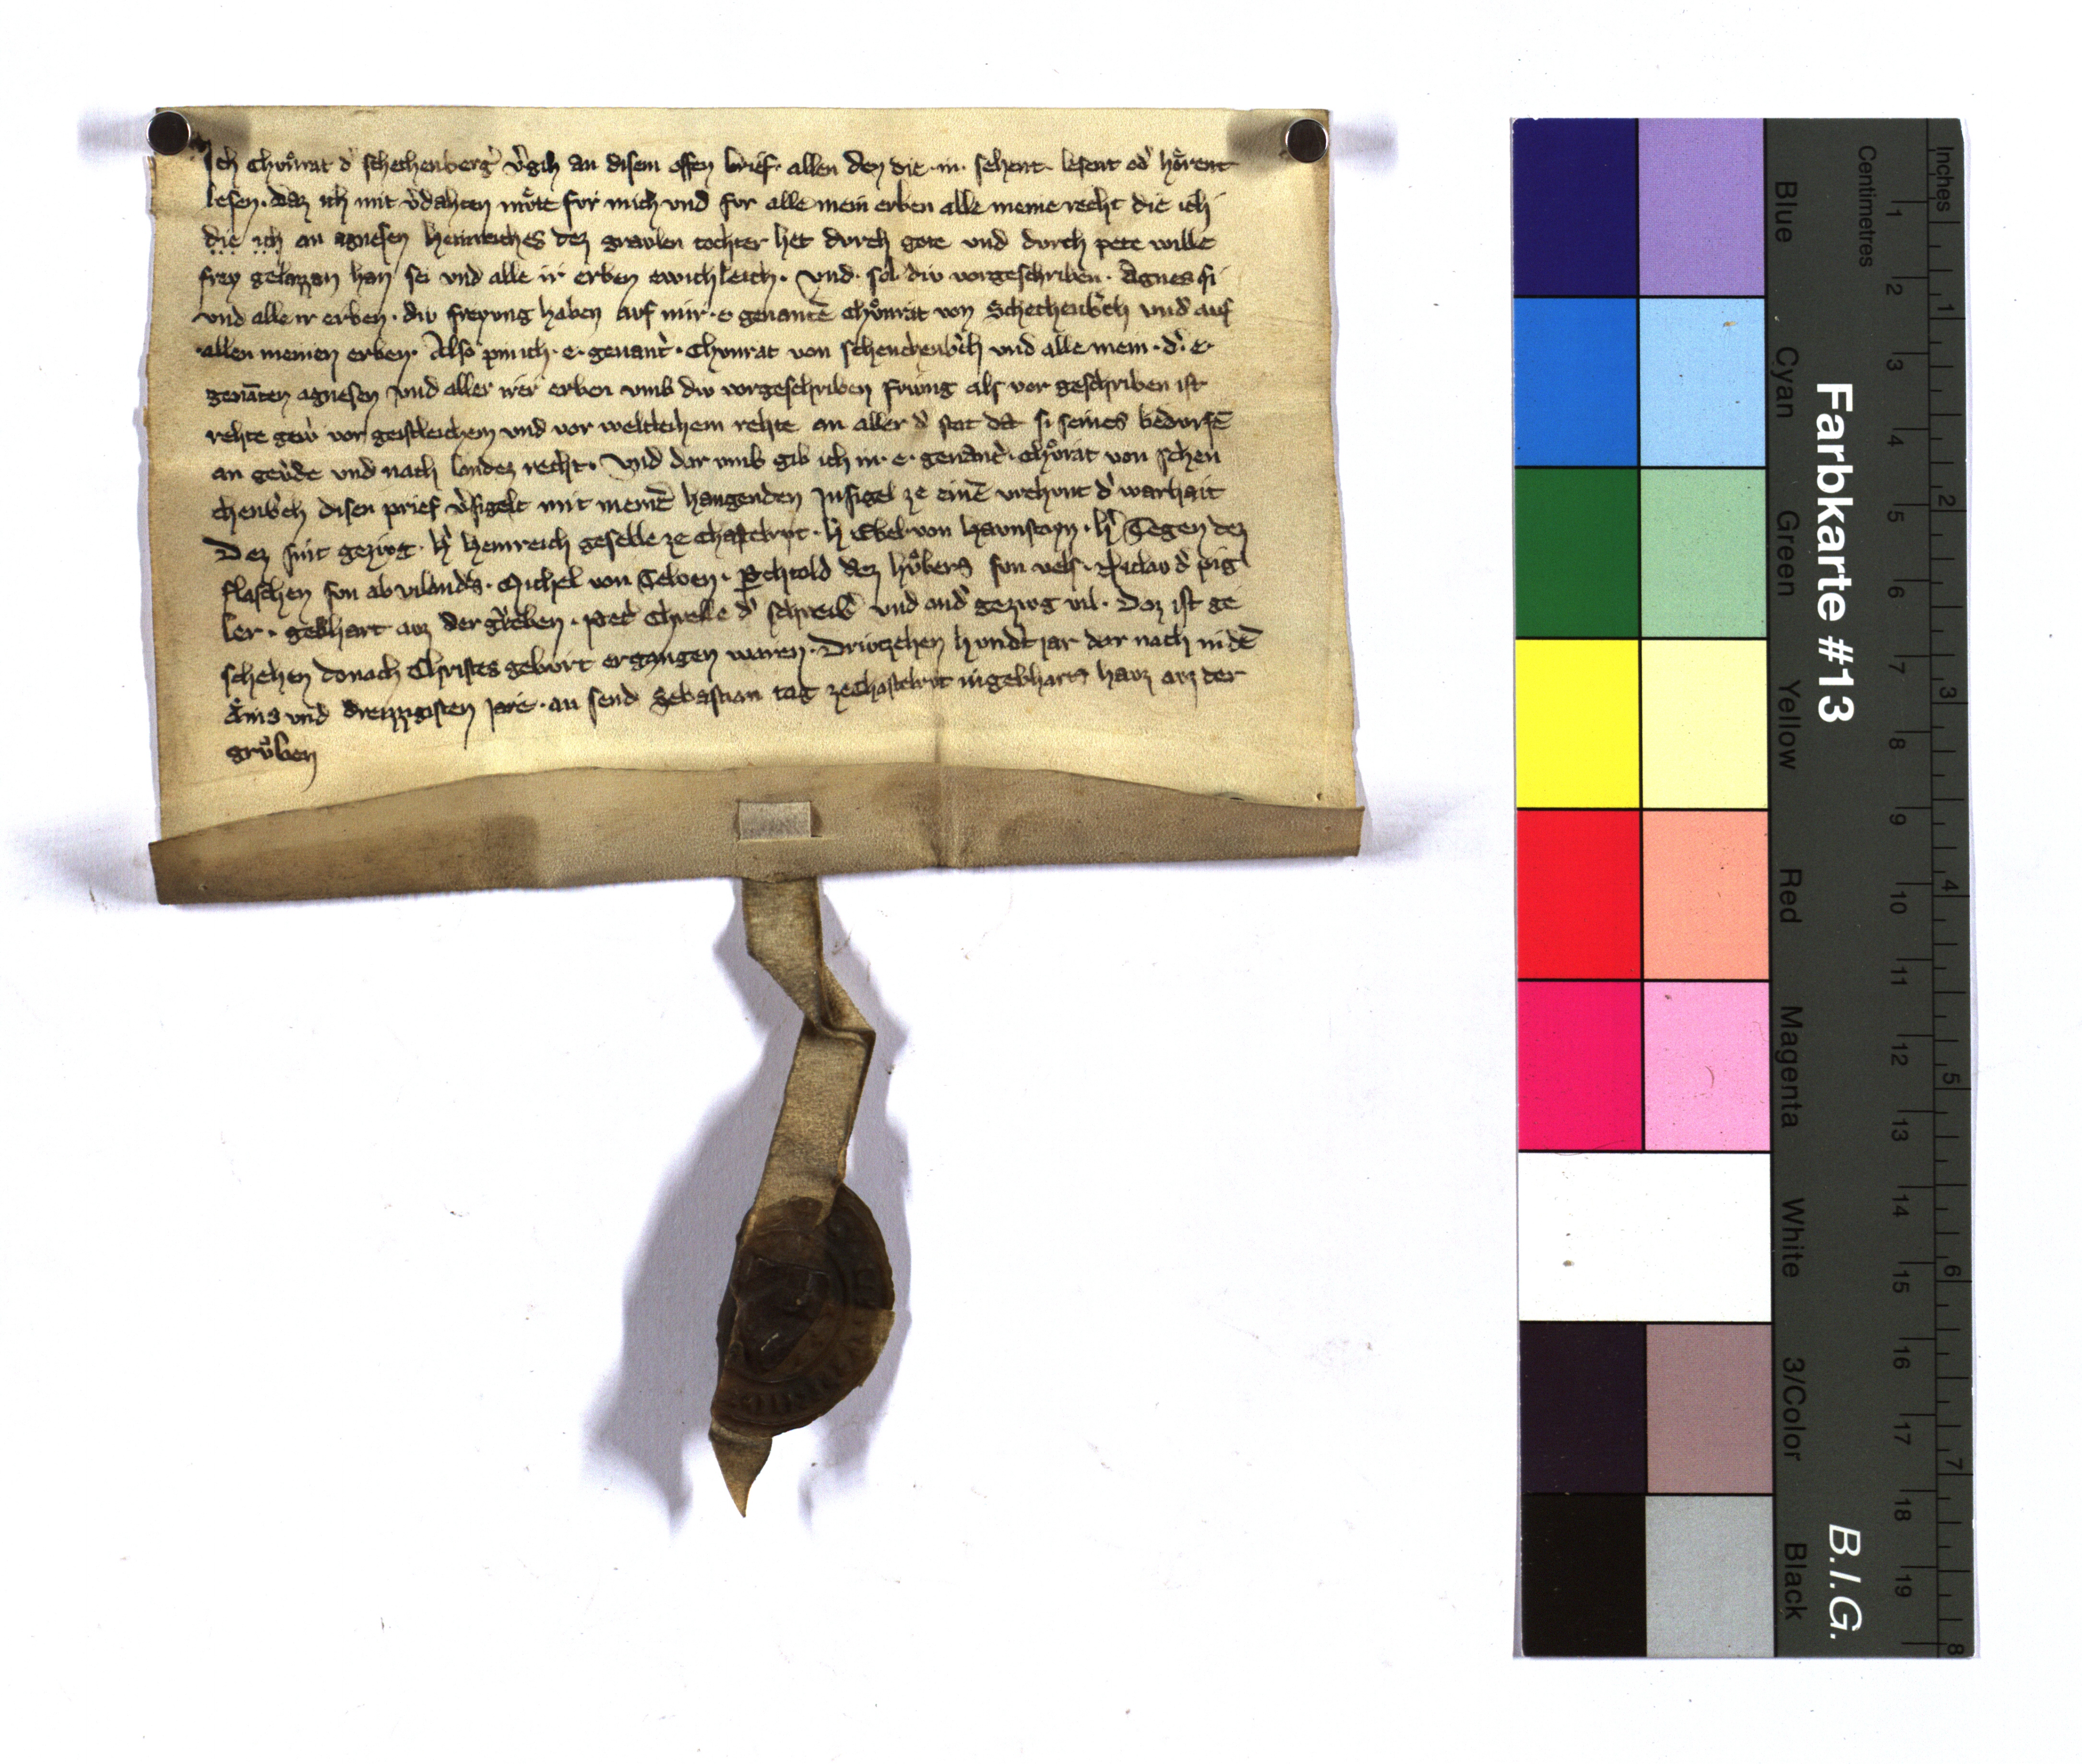 Ich Chuͦnrat d͛ schechenberg͛ v͛gih an disem offen brief· allen den die· in· sehent· lesent od͛ hoͤrent
lesen· daz ich mit v͛dahten muͦte fur mich vnd for alle mein erben alle meine recht die ich
die ich an agnesen heinreiches dez gravlen tochter het durch gote vnd durch pete wille
frey gelazzan han sei vnd alle ir erben ewichleich· Vnd· sol div vorgeschriben· Agnes si
vnd alle ir erben· div freyvng haben auf mir· e genantē Chuͦnrat von Schechenb͛ch vnd auf
allen meinen erben· Also pin ich· e· genant͛· Chvnrat von schenchenb͛ch vnd alle mein· d͛· e·
genāten agnesen vnd aller irer erben vmb div vorgeschriben friung als vor geschriben ist
rehte gew͛ vor geistleichem vnd vor weltleihem rehte an aller d͛ stat da si seines bedurfē
an gev͛de vnd nach landez recht· Vnd dar vmb gib ich in· e· genant͛· Chuͦrat von schen
chenb͛ch disen prief v͛sigelt mit meinē hangenden Insigel ze einē vrchvnt d͛ warhait
Dez sint gezivg· h͛ Heinreich geselle ze Chastelrut· h͛ Ebel von Havnstayn· h͛ Tegen dez
flaschen sun ab vilands· Michel von Teloen· Perchtold dez huͦbers sun vels· Niclav d͛ pig
ler· gebhart avz der gruͦben· Pet͛ Chrelle d͛ schreib͛ vnd and͛ gezivg vil· Daz ist ge
schehen donach Christes gebvrt ergangen waren· Drivtzehen hvnd͛t jar dar nach in dē
Ains vnd dreizzigisten jare· an send Sebastian tag ze Chastelrvt in gebharts havz avz der
gruͦben
Farbkarte #13
B.I.G.
Inches
Centimetres
1 2 3 4 5 6 7 8
1 2 3 4 5 6 7 8 9 10 11 12 13 14 15 16 17 18 19
Blue
Cyan
Green
Yellow
Red
Magenta
White
3/Color
Black